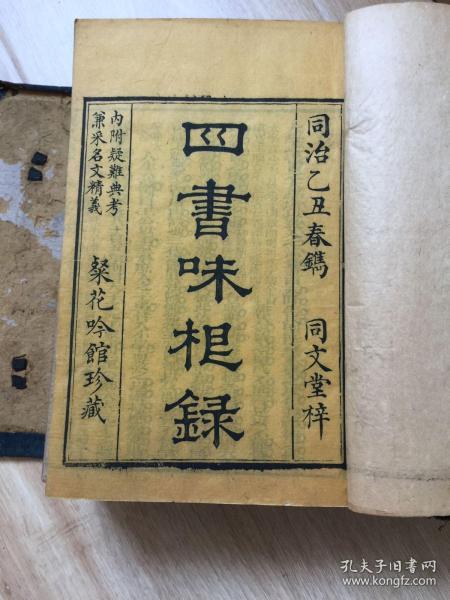 同治乙丑春鐫
同文堂梓
四書味根録
內附疑難典考
兼采名文精義
粲花吟館珍藏
孔夫子旧书网
www.kongfz.com